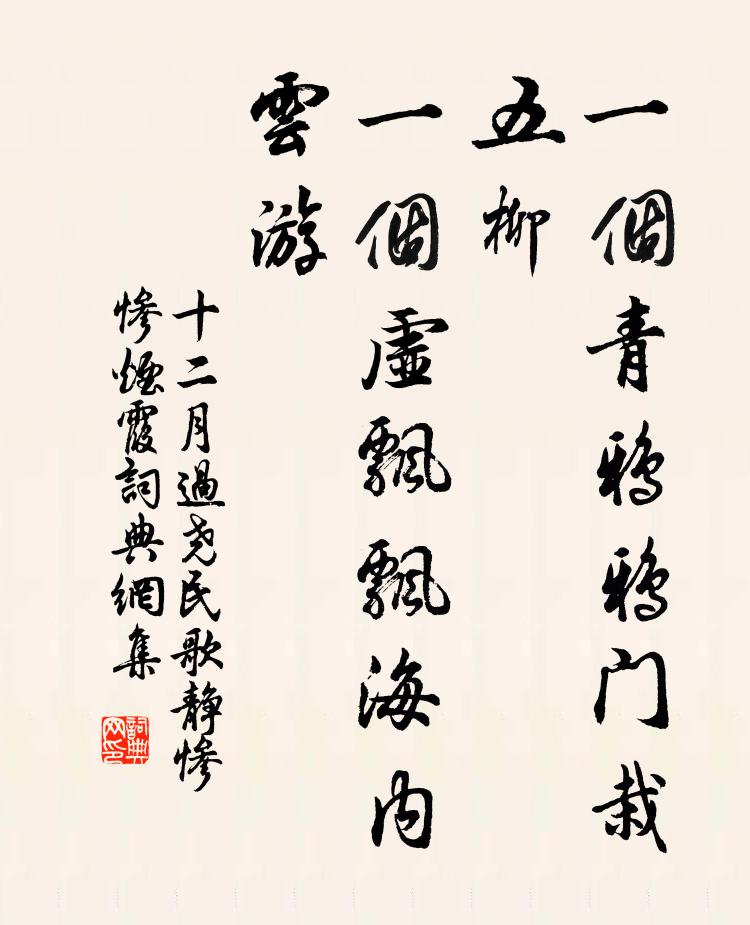 一個青鴉鴉門栽
五柳
一個虛飄飄海內
雲游
十二月過尧民歌靜慘
慘煙霞詞典網集
詞典
网印